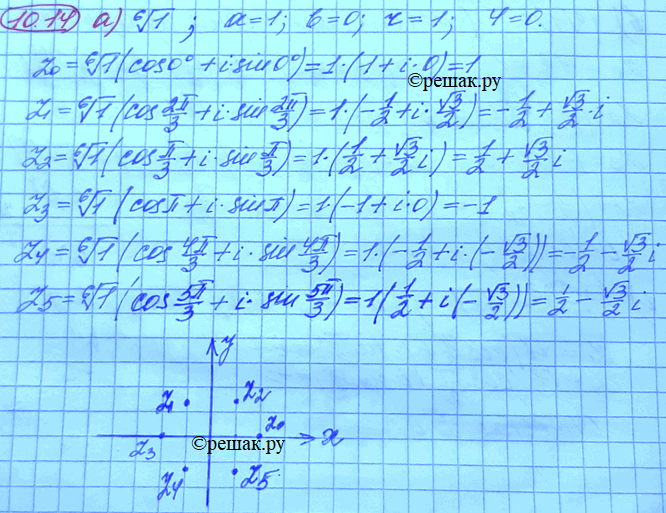 10.14 а) ⁶√1 ; a=1; b=0; r=1; φ=0.
z₀ = ⁶√1 (cos0° + i sin0°) = 1·(1 + i·0) = 1
©решак.ру
z₁ = ⁶√1 (cos 2π/3 + i·sin 2π/3) = 1·(-1/2 + i·√3/2) = -1/2 + √3/2·i
z₂ = ⁶√1 (cos π/3 + i·sin π/3) = 1·(1/2 + √3/2 i) = 1/2 + √3/2 i
z₃ = ⁶√1 (cosπ + i·sinπ) = 1·(-1 + i·0) = -1
z₄ = ⁶√1 (cos 4π/3 + i·sin 4π/3) = 1·(-1/2 + i·(-√3/2)) = -1/2 - √3/2 i
z₅ = ⁶√1 (cos 5π/3 + i·sin 5π/3) = 1(1/2 + i(-√3/2)) = 1/2 - √3/2 i
y
z₁ z₂
z₀
z₃ ©решак.ру x
z₄ z₅